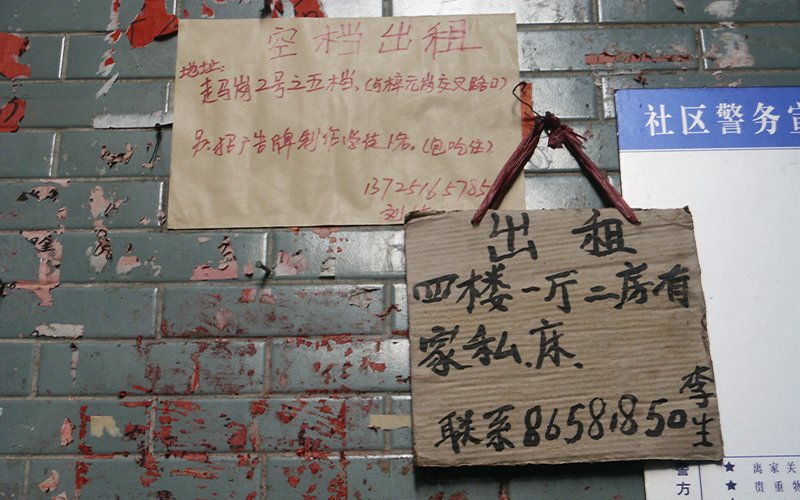 空档出租
地址:
走马岗2号之五档.(与梓元岗交叉路口)
另.招广告牌制作学徒1名.(包吃住)
13725165785
刘
出租
四楼一厅二房有
家私.床.
联系86581850
李生
社区警务宣
警方
★ 离家关
★ 贵重物